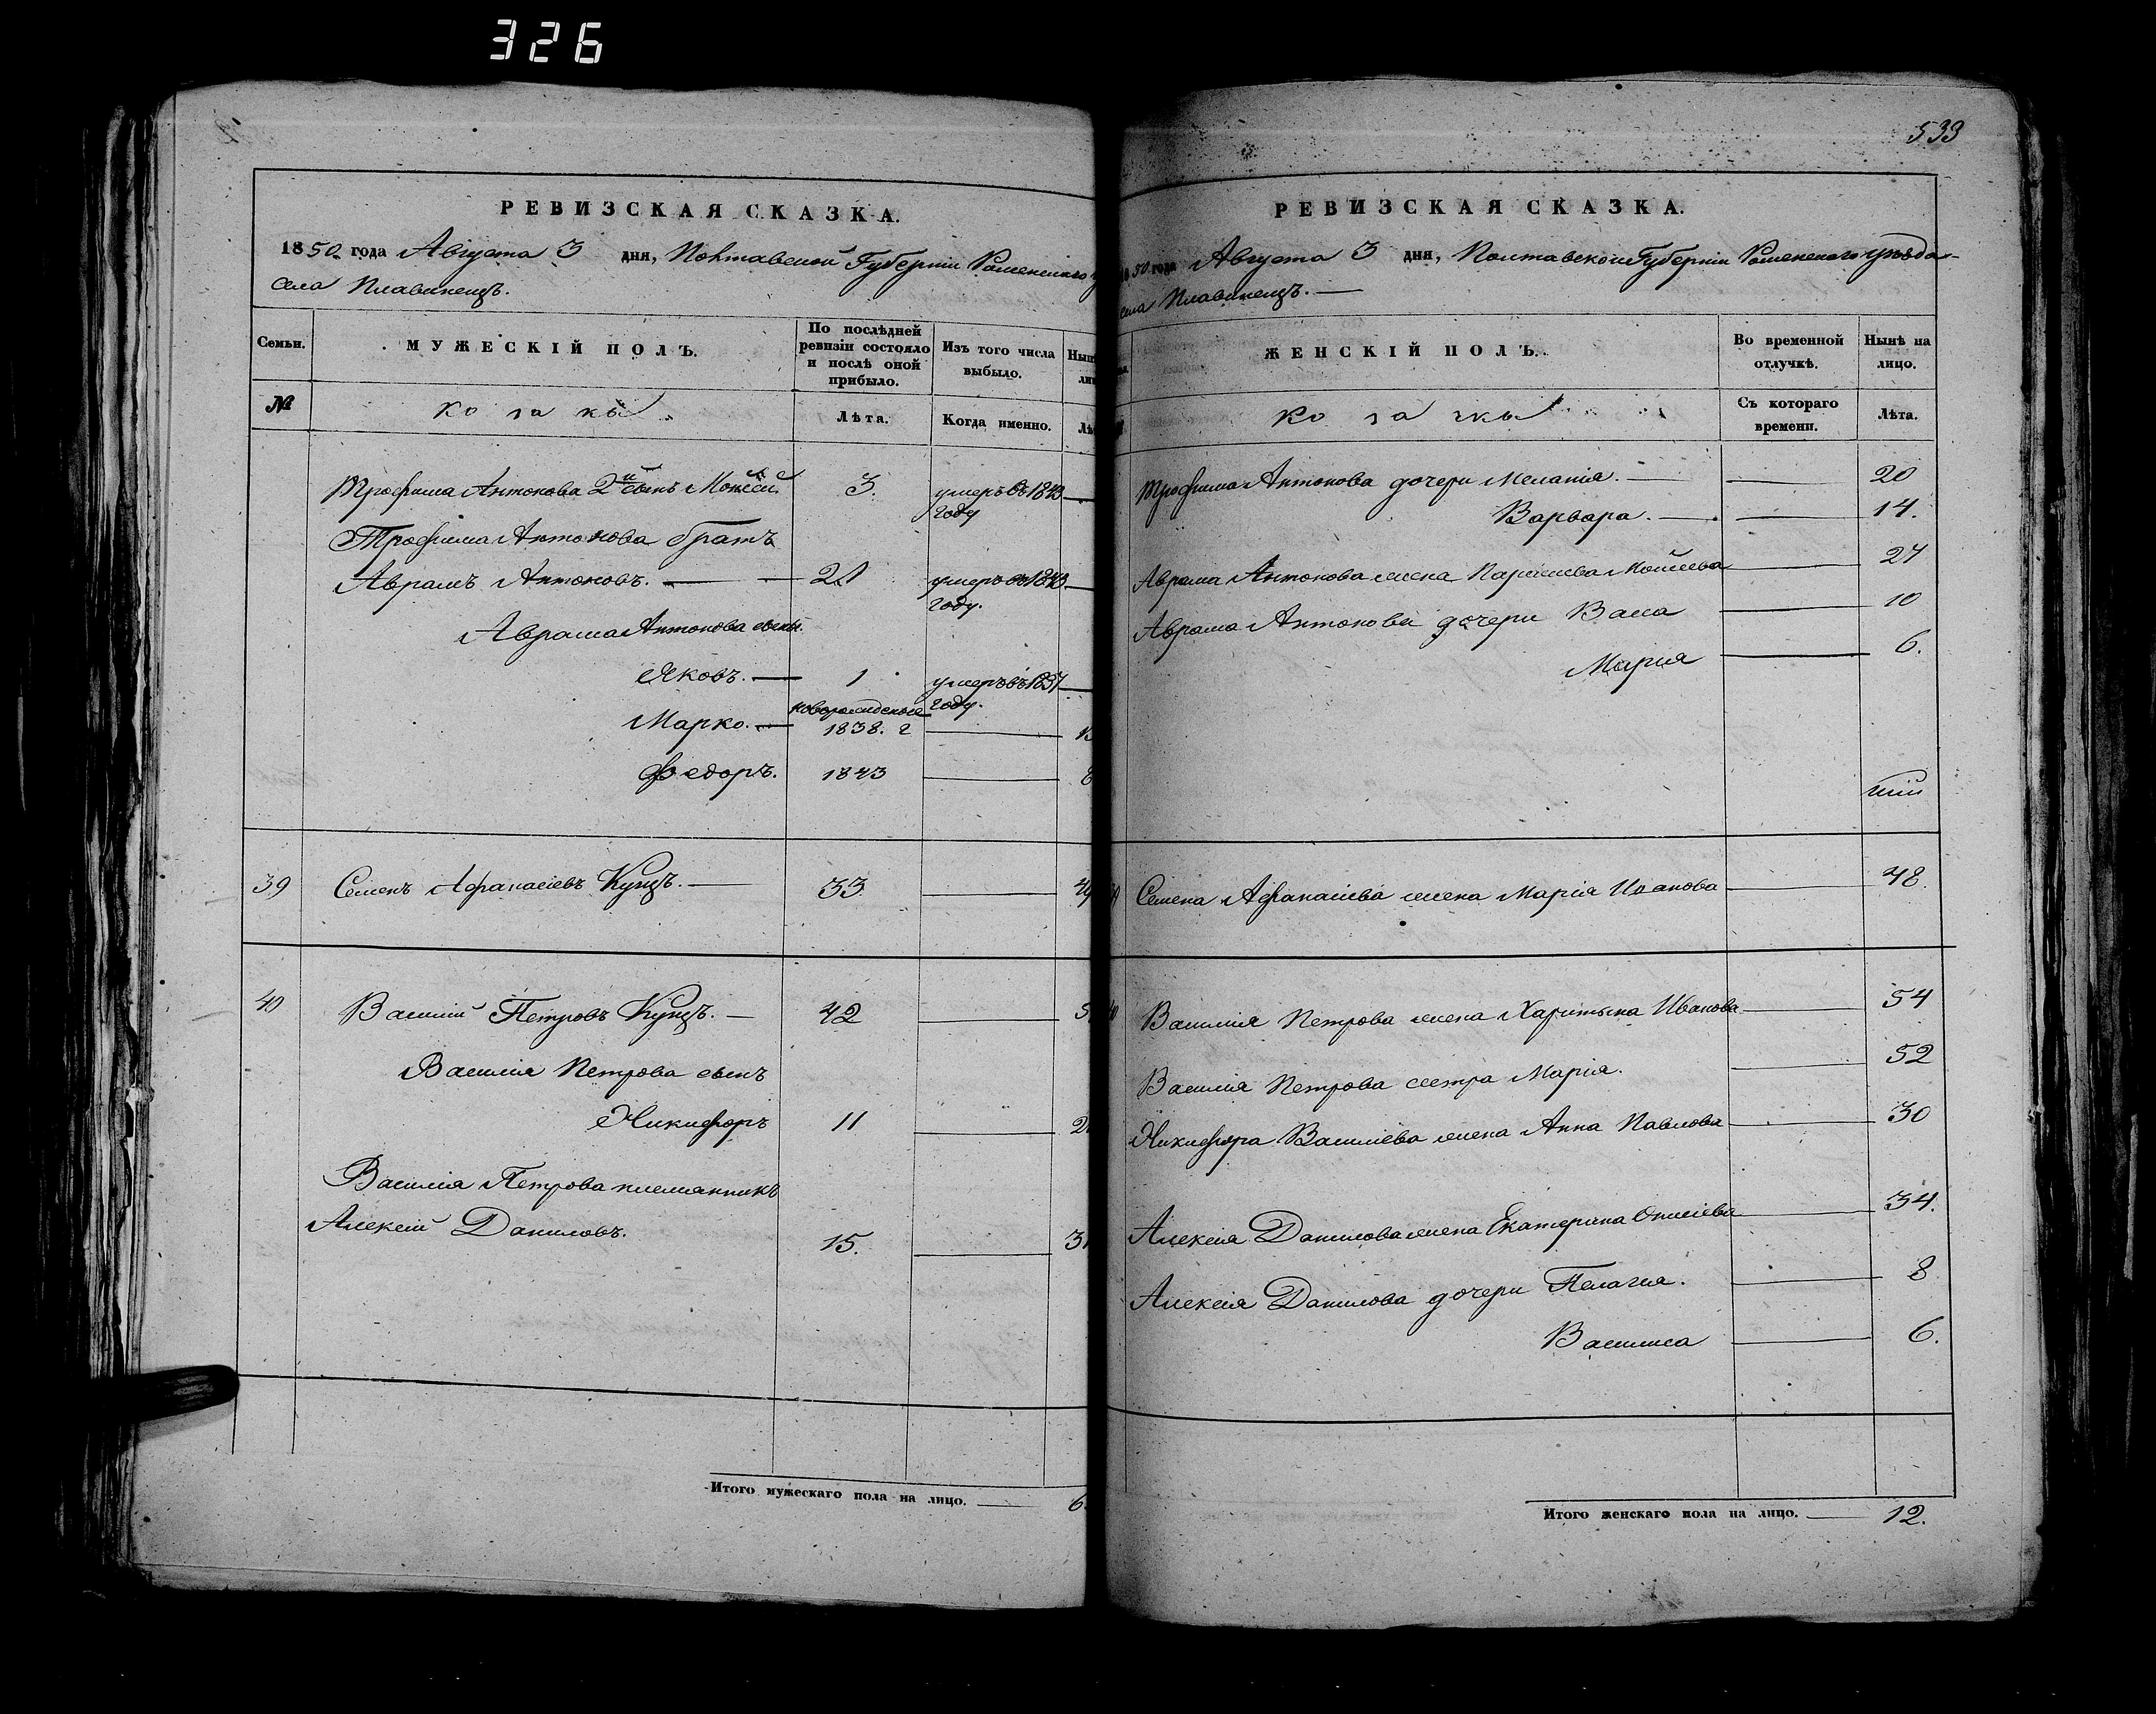 326
РЕВИЗСКАЯ СКАЗКА.
1850 года Августа 3 дня, Полтавской Губерніи Роменскаго
села Плавинещъ.
Семьи.
МУЖЕСКІЙ ПОЛЪ.
По послѣдней ревизіи состояло и послѣ оной прибыло.
Изъ того числа выбыло.
№
Козаки
Лѣта.
Когда именно.
Трофима Антонова 2й сынъ Моисей 3. умеръ въ 1843 году
Трофима Антонова братъ
Аврамъ Антоновъ. — 21 умеръ въ 1843 году.
Аврама Антонова сыны.
Яковъ. — 1 умеръ въ 1837 году.
Марко. — новорожденные 1838. г
Федоръ. 1843 8
39 Семенъ Афанасіевъ Куцъ. — 33 49
40 Василій Петровъ Куцъ. — 42
Василія Петрова сынъ
Никифоръ 11
Василія Петрова племянникъ
Алексій Даниловъ. 15. 31
Итого мужескаго пола на лицо. — 6.
533
РЕВИЗСКАЯ СКАЗКА.
1850 года Августа 3 дня, Полтавской Губерніи Роменскаго уѣзда
села Плавинещъ. —
ЖЕНСКІЙ ПОЛЪ.
Во временной отлучкѣ.
Нынѣ на лицо.
Козачки
Съ котораго времени.
Лѣта.
Трофима Антонова дочери Меланія. — 20
Варвара. — 14.
Аврама Антонова жена Моисеева 27
Аврама Антонова дочери Васса 10
Мария 6.
Семена Афанасіева жена Марія Иванова 48.
40 Василія Петрова жена Харитына Иванова 54
Василія Петрова сестра Марія. 52
Никифора Василіева жена Анна Павлова 30
Алексія Данилова жена Екатерина Онисіева 34.
Алексія Данилова дочери Пелагия. 8
Василиса 6.
Итого женскаго пола на лицо. — 12.